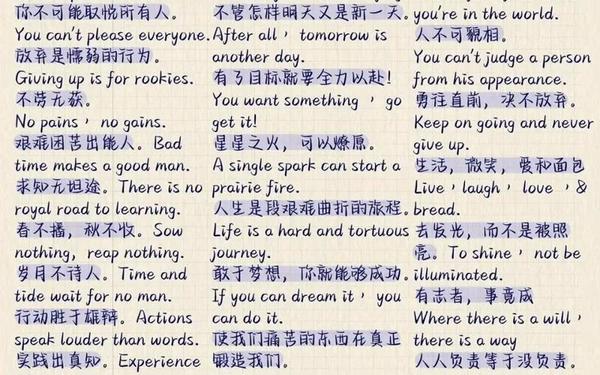 你不可能取悦所有人。
You can't please everyone.
放弃是懦弱的行为。
Giving up is for rookies.
不劳无获。
No pains, no gains.
艰难困苦出能人。Bad
time makes a good man.
求知无坦途。There is no
royal road to learning.
春不播，秋不收。Sow
nothing, reap nothing.
岁月不待人。Time and
tide wait for no man.
行动胜于雄辩。Actions
speak louder than words.
实践出真知。Experience
不管怎样明天又是新一天。
After all，tomorrow is
another day.
有了目标就要全力以赴!
You want something，go
get it!
星星之火，可以燎原。
A single spark can start a
prairie fire.
人生是段艰难曲折的旅程。
Life is a hard and tortuous
journey.
敢于梦想，你就能够成功。
If you can dream it，you
can do it.
使我们痛苦的东西在真正
锻造我们。
you're in the world.
人不可貌相。
You can't judge a person
from his appearance.
勇往直前，决不放弃。
Keep on going and never
give up.
生活，微笑，爱和面包
Live，laugh，love，&
bread.
去发光，而不是被照
亮。To shine，not be
illuminated.
有志者，事竟成
Where there is a will，
there is a way
人人负责等于没负责。